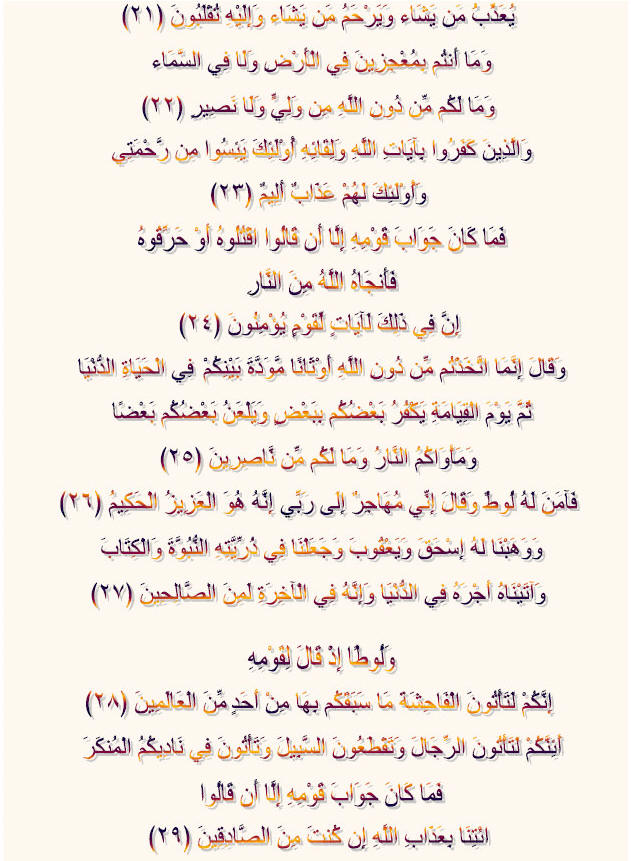 يُعَذِّبُ مَن يَشَاء وَيَرْحَمُ مَن يَشَاء وَإِلَيْهِ تُقْلَبُونَ (٢١)
وَمَا أَنتُم بِمُعْجِزِينَ فِي الْأَرْضِ وَلَا فِي السَّمَاء
وَمَا لَكُم مِّن دُونِ اللَّهِ مِن وَلِيٍّ وَلَا نَصِيرٍ (٢٢)
وَالَّذِينَ كَفَرُوا بِآيَاتِ اللَّهِ وَلِقَائِهِ أُوْلَئِكَ يَئِسُوا مِن رَّحْمَتِي
وَأُوْلَئِكَ لَهُمْ عَذَابٌ أَلِيمٌ (٢٣)
فَمَا كَانَ جَوَابَ قَوْمِهِ إِلَّا أَن قَالُوا اقْتُلُوهُ أَوْ حَرِّقُوهُ
فَأَنجَاهُ اللَّهُ مِنَ النَّارِ
إِنَّ فِي ذَلِكَ لَآيَاتٍ لِّقَوْمٍ يُؤْمِنُونَ (٢٤)
وَقَالَ إِنَّمَا اتَّخَذْتُم مِّن دُونِ اللَّهِ أَوْثَانًا مَّوَدَّةَ بَيْنِكُمْ فِي الْحَيَاةِ الدُّنْيَا
ثُمَّ يَوْمَ الْقِيَامَةِ يَكْفُرُ بَعْضُكُم بِبَعْضٍ وَيَلْعَنُ بَعْضُكُم بَعْضًا
وَمَأْوَاكُمُ النَّارُ وَمَا لَكُم مِّن نَّاصِرِينَ (٢٥)
فَآمَنَ لَهُ لُوطٌ وَقَالَ إِنِّي مُهَاجِرٌ إِلَى رَبِّي إِنَّهُ هُوَ الْعَزِيزُ الْحَكِيمُ (٢٦)
وَوَهَبْنَا لَهُ إِسْحَقَ وَيَعْقُوبَ وَجَعَلْنَا فِي ذُرِّيَّتِهِ النُّبُوَّةَ وَالْكِتَابَ
وَآتَيْنَاهُ أَجْرَهُ فِي الدُّنْيَا وَإِنَّهُ فِي الْآخِرَةِ لَمِنَ الصَّالِحِينَ (٢٧)
وَلُوطًا إِذْ قَالَ لِقَوْمِهِ
إِنَّكُمْ لَتَأْتُونَ الْفَاحِشَةَ مَا سَبَقَكُم بِهَا مِنْ أَحَدٍ مِّنَ الْعَالَمِينَ (٢٨)
أَئِنَّكُمْ لَتَأْتُونَ الرِّجَالَ وَتَقْطَعُونَ السَّبِيلَ وَتَأْتُونَ فِي نَادِيكُمُ الْمُنكَرَ
فَمَا كَانَ جَوَابَ قَوْمِهِ إِلَّا أَن قَالُوا
ائْتِنَا بِعَذَابِ اللَّهِ إِن كُنتَ مِنَ الصَّادِقِينَ (٢٩)